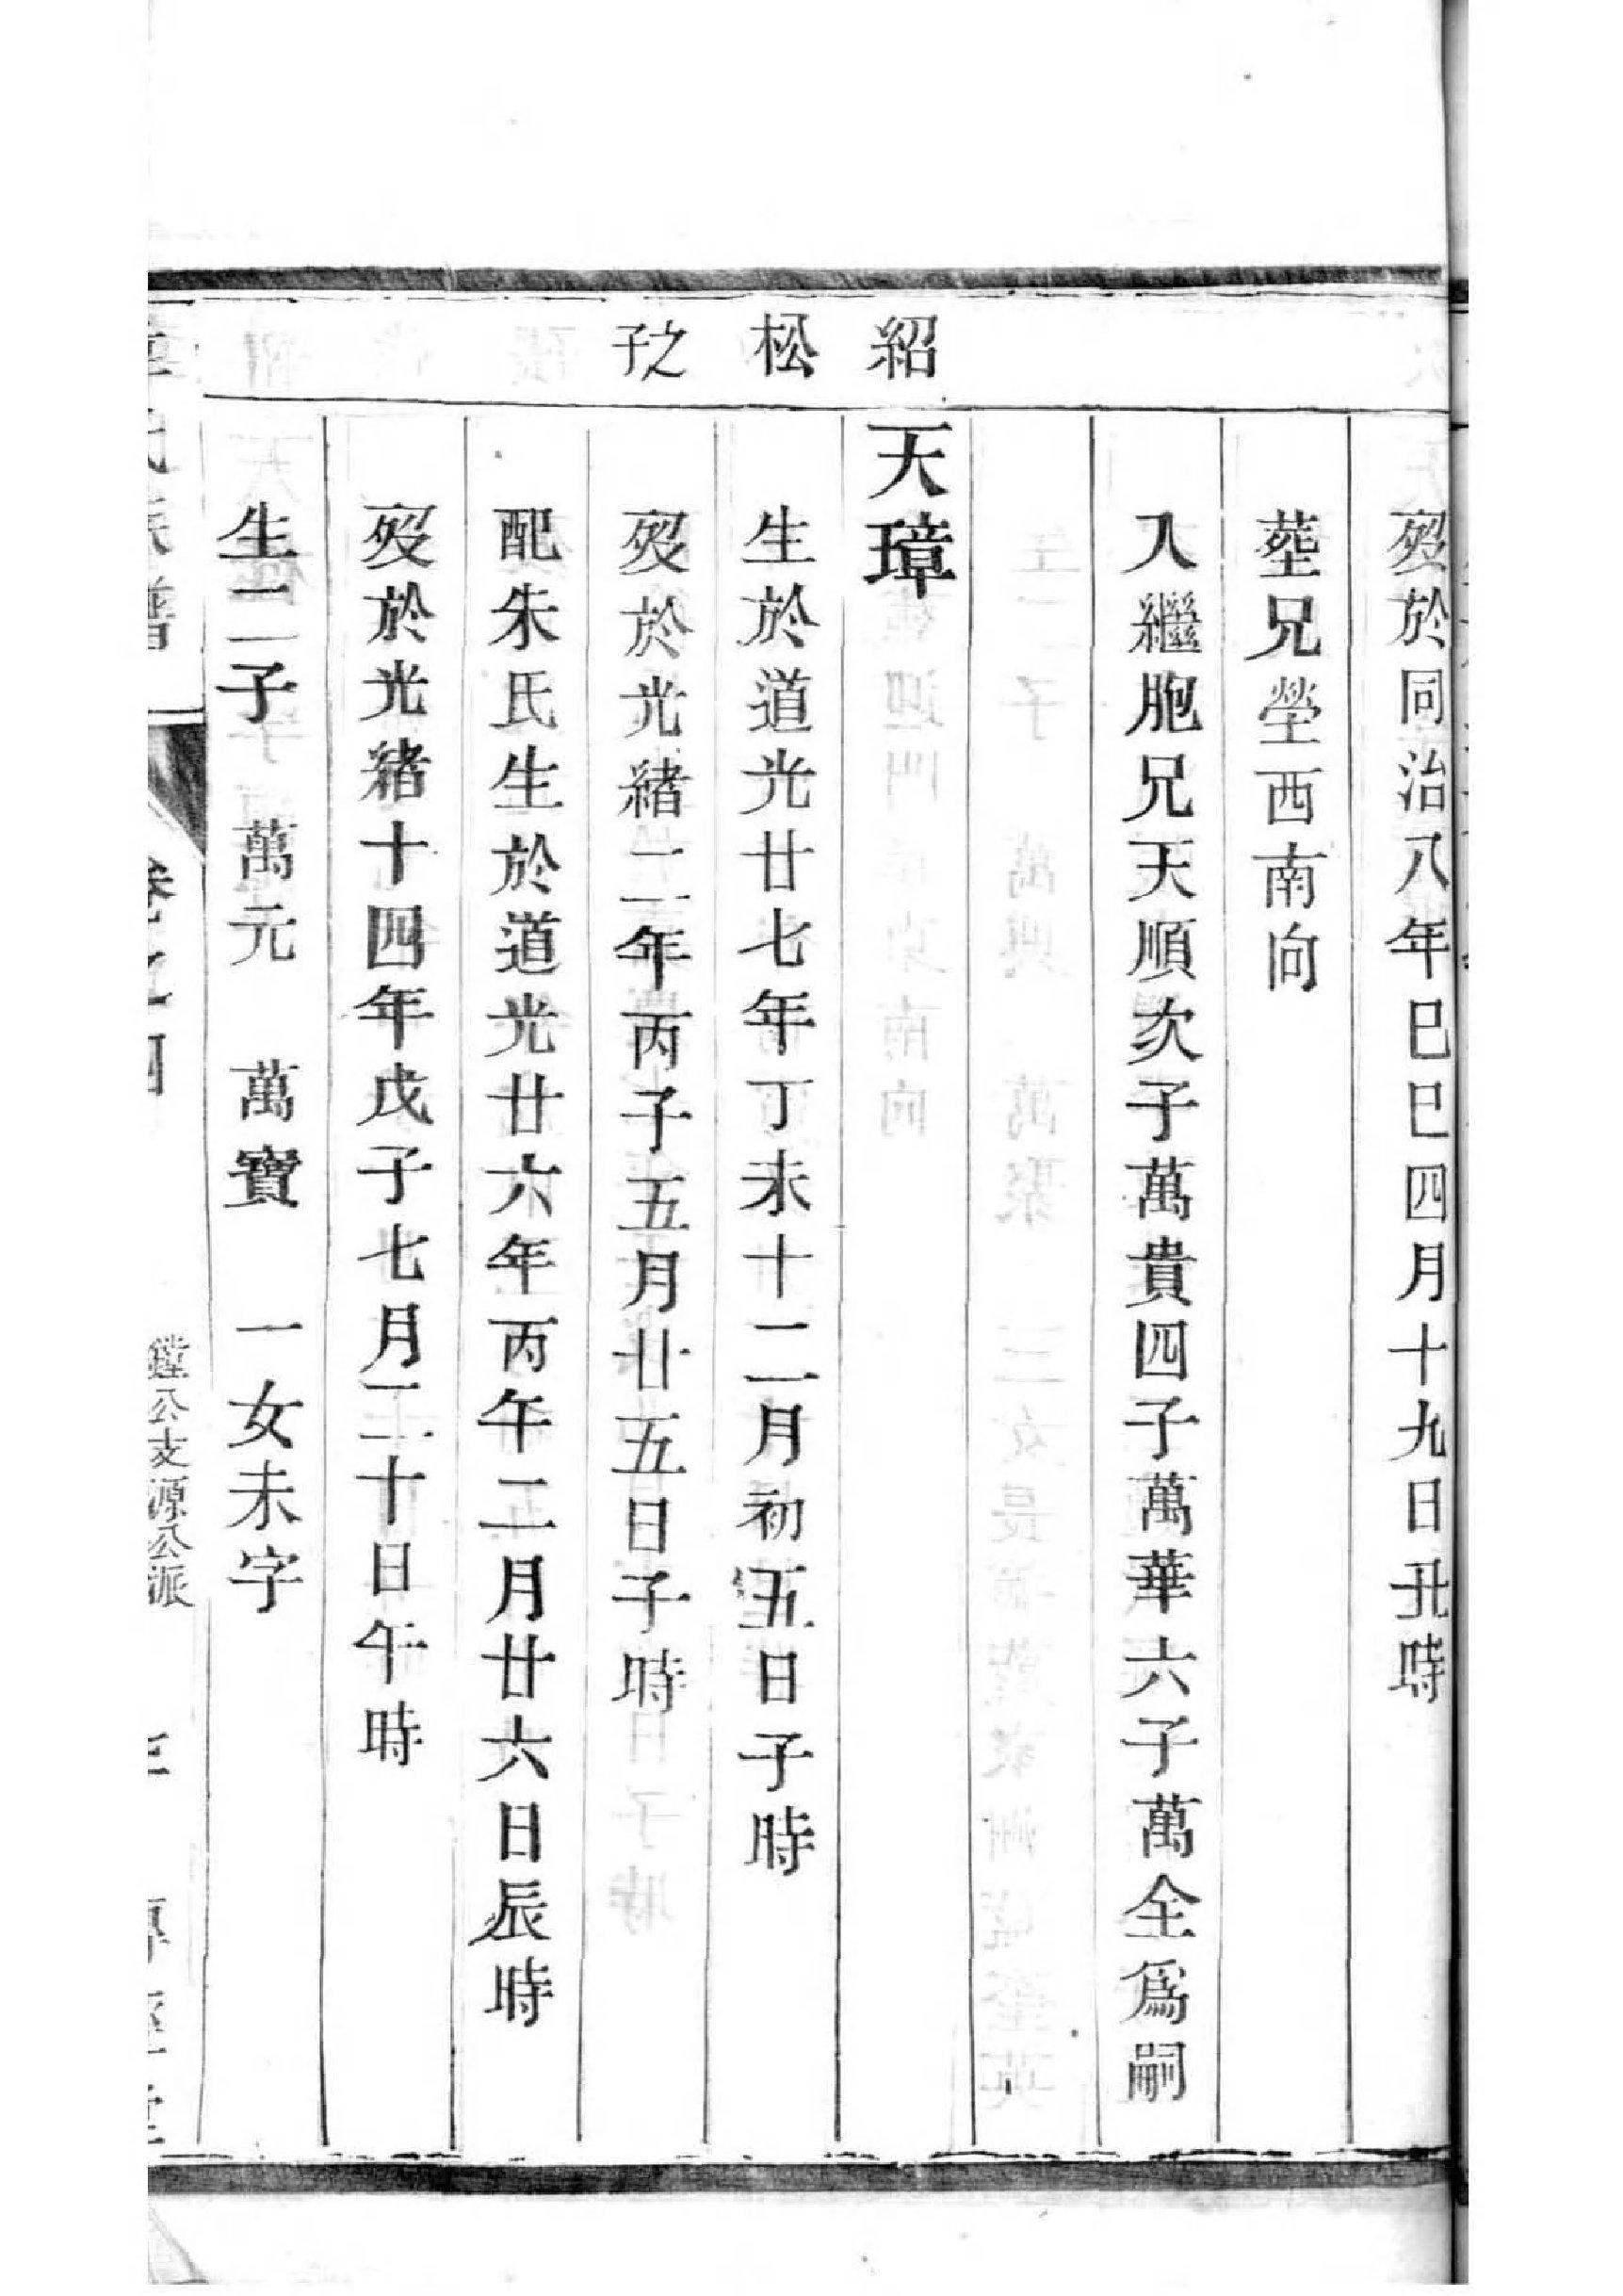 歿於同治八年巳巳四月十九日丑時
塟兄塋西南向
入繼胞兄天順次子萬貴四子萬華六子萬全爲嗣
紹松之子
天璋
生於道光廿七年丁未十二月初五日子時
歿於光緒二年丙子五月廿五日子時
配朱氏生於道光廿六年丙午二月廿六日辰時
歿於光緒十四年戊子七月二十日午時
生二子 萬元 萬寶 一女未字
卷之四
鏜公支源公派